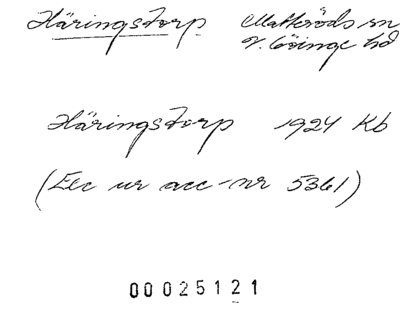 Häringstorp Matteröds sn
V. Göinge hd
Häringstorp 1924 Kb
(Exc ur acc-nr 5361)
00025121